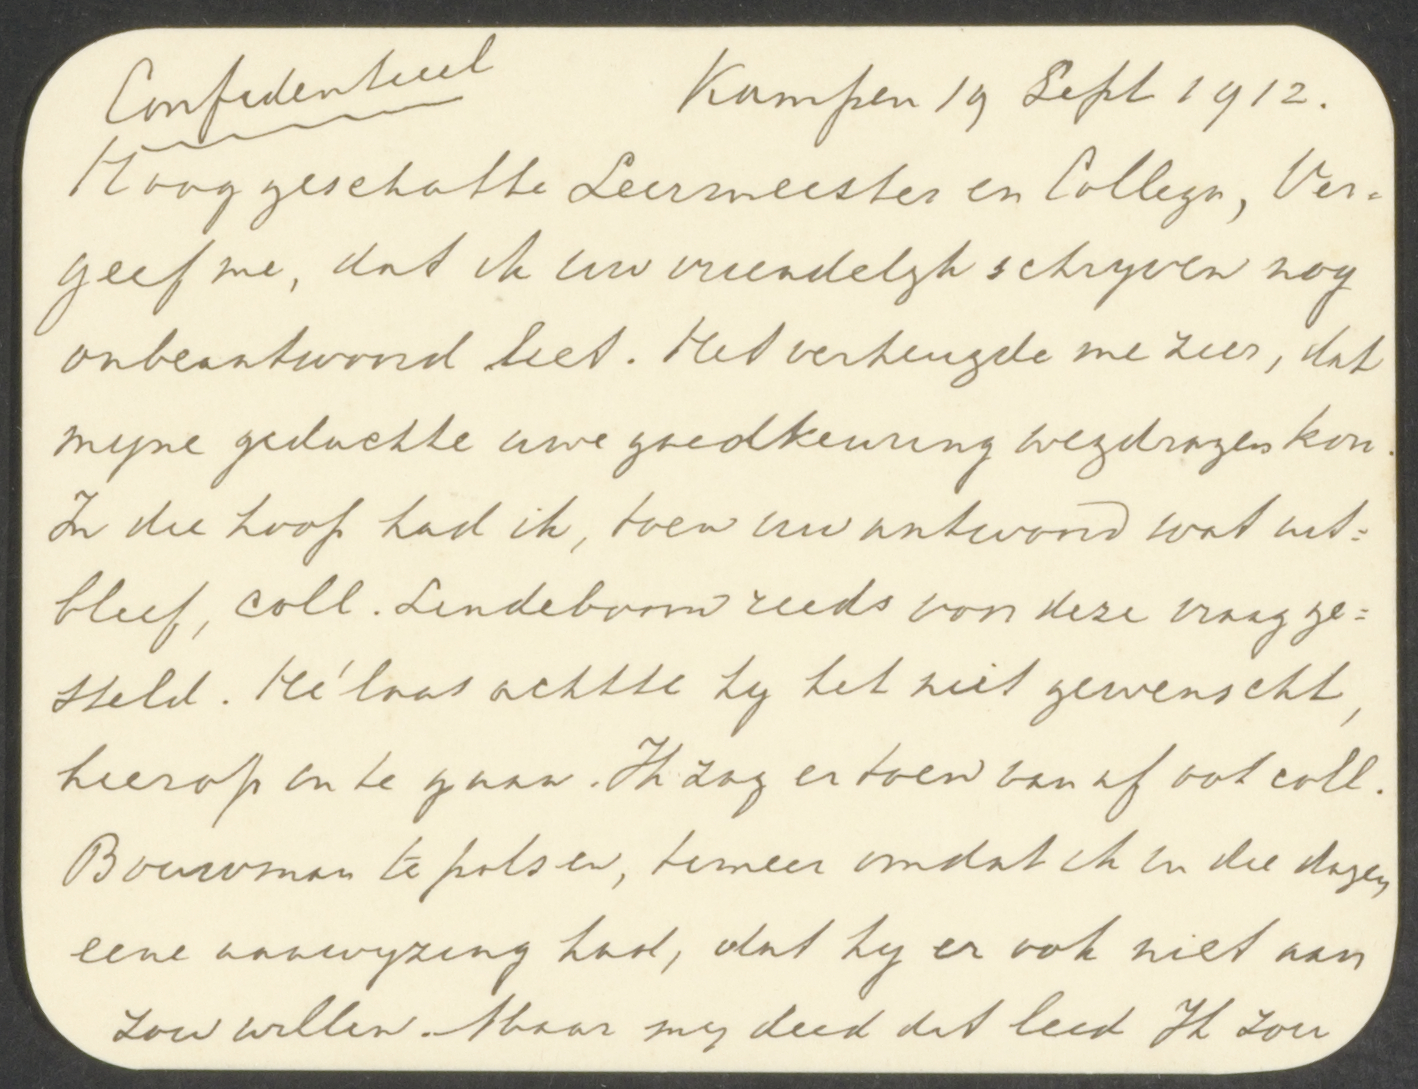 Confidentieel Kampen 19 Sept 1912.
Hooggeschatte Leermeester en Collega, Ver=
geef me, dat ik uw vriendelijk schrijven nog
onbeantwoord liet. Het verheugde me zeer, dat
mijne gedachte uwe goedkeuring wegdragen kon.
In die hoop had ik, toen uw antwoord wat uit=
bleef, coll. Lindeboom reeds voor deze vraag ge=
steld. Hélaas achtte hij het niet gewenscht,
hierop in te gaan. Ik zag er toen van af ook coll.
Bouwman te polsen, temeer omdat ik in die dagen
eene aanwijzing had, dat hij er ook niet aan
zou willen. Maar mij deed dit leed Ik zou